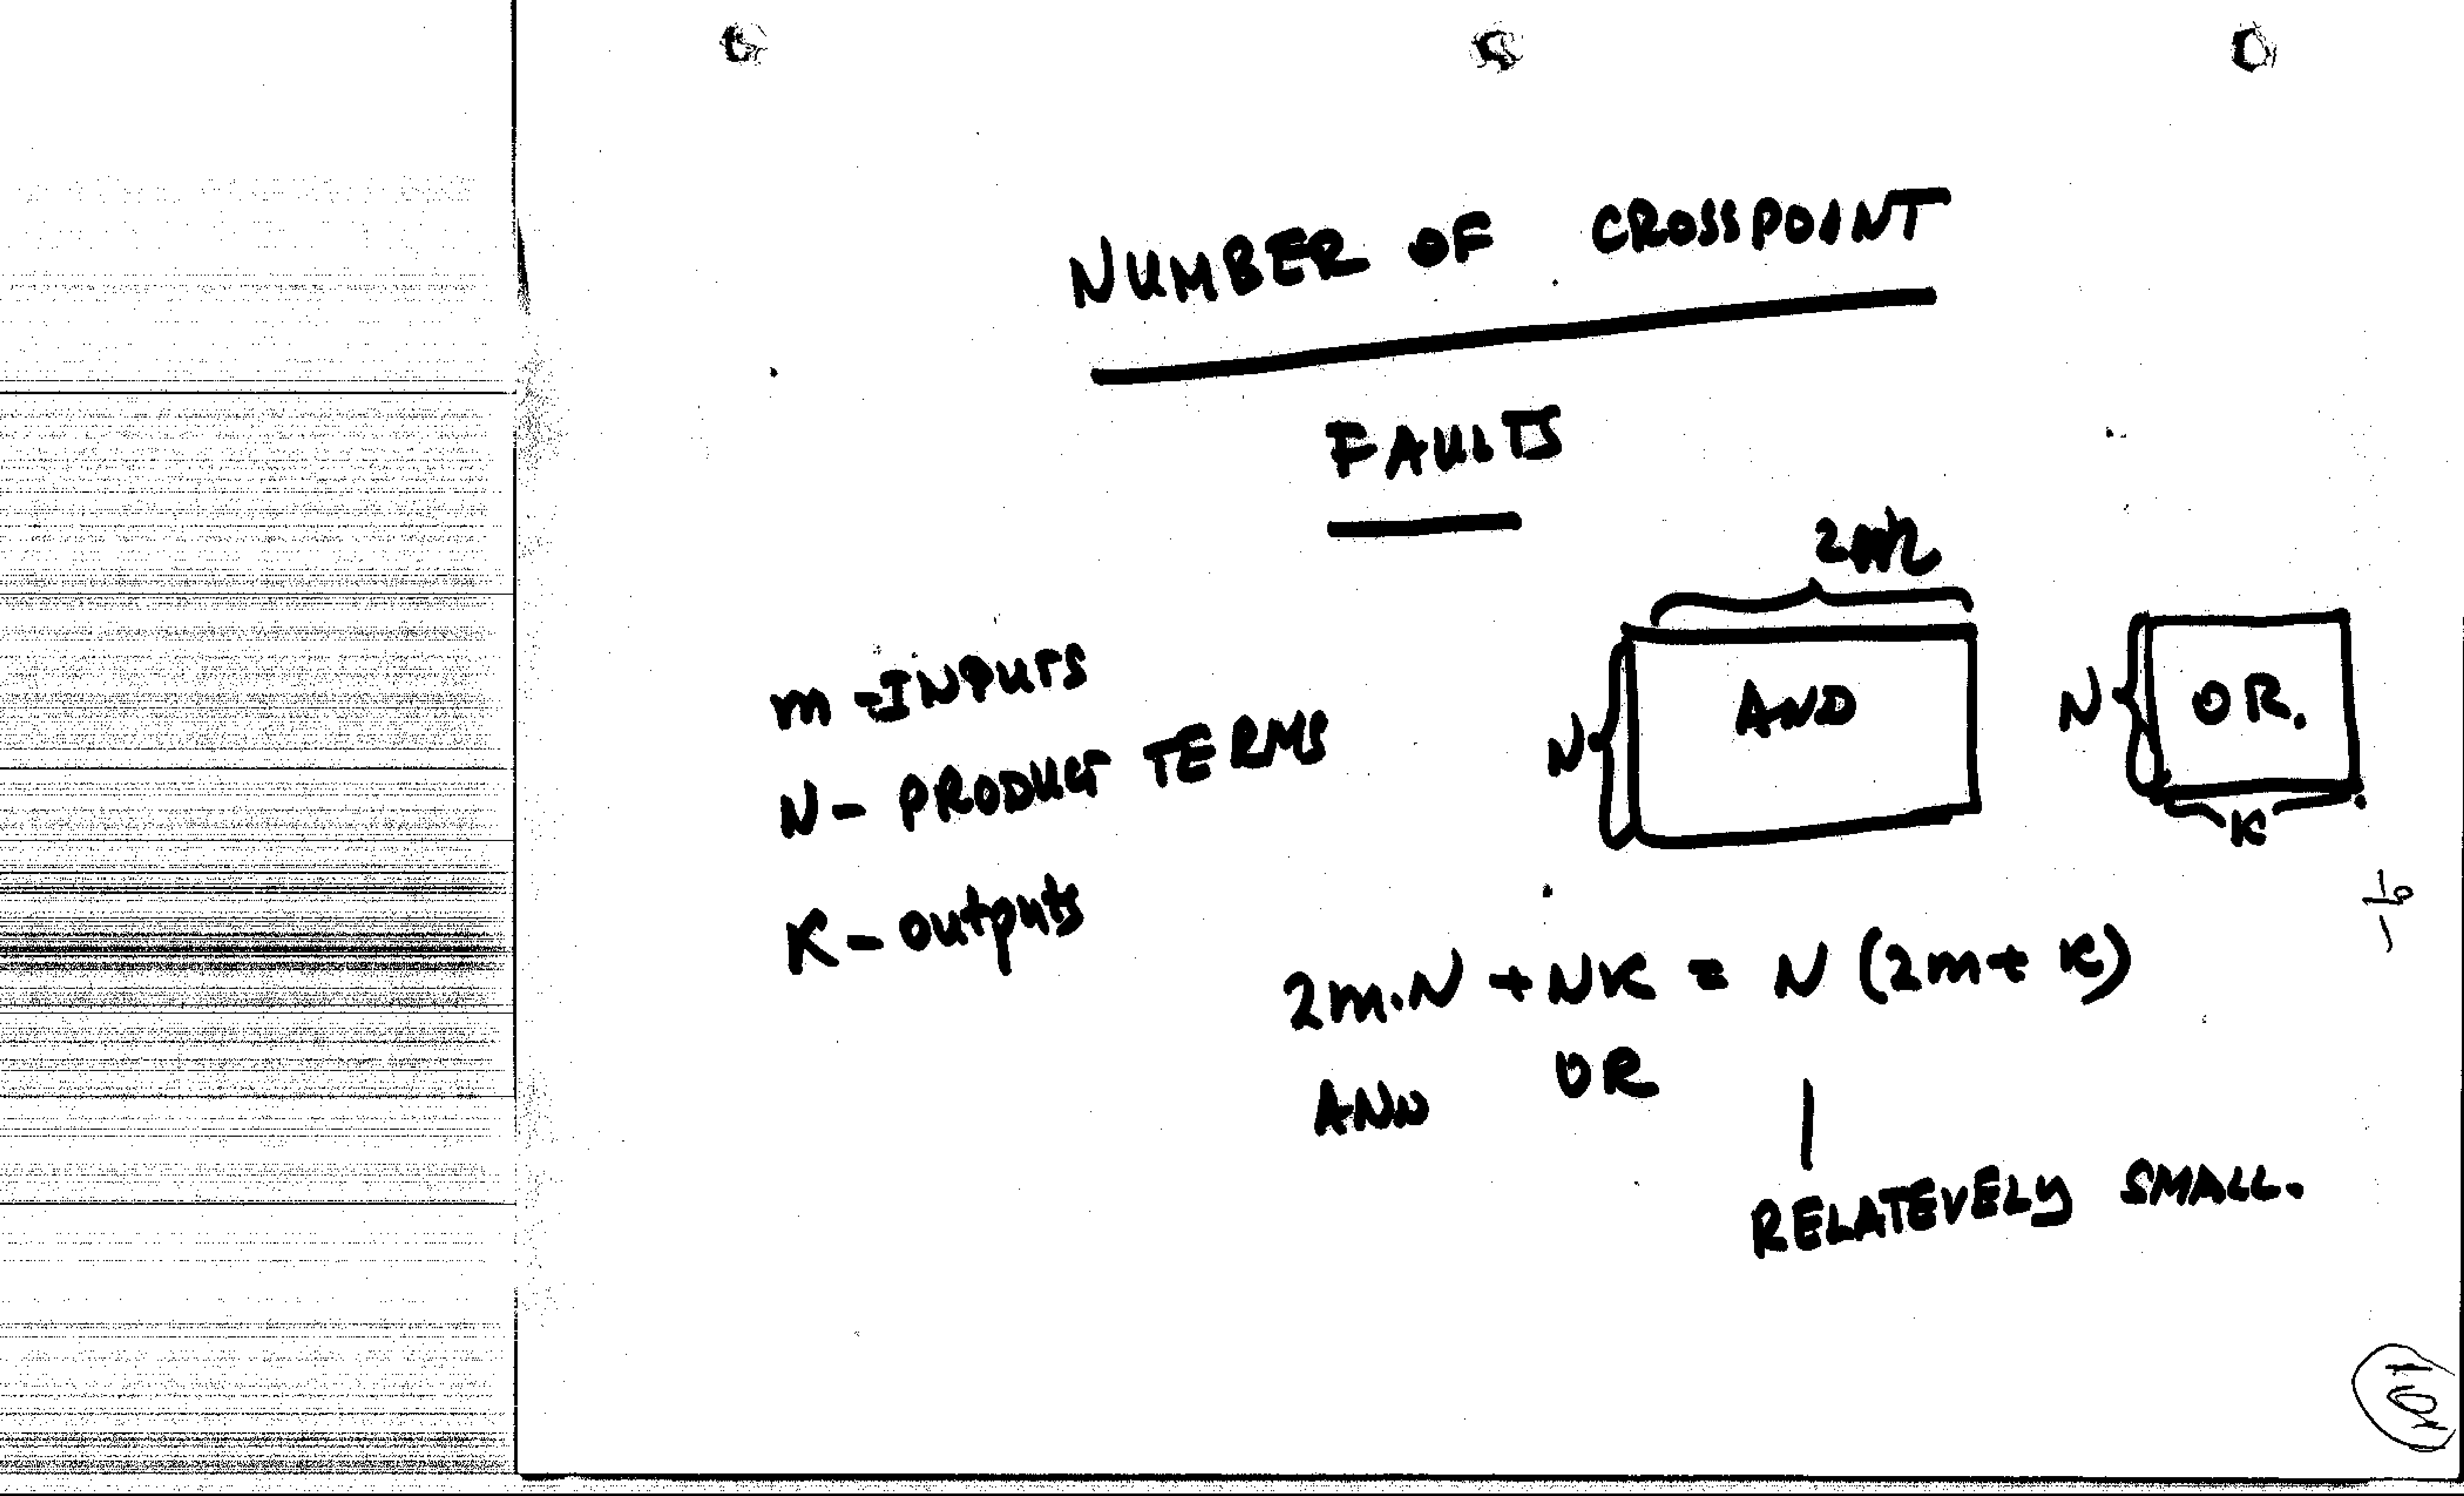 NUMBER OF CROSSPOINT
FAULTS
m - INPUTS
N - PRODUCT TERMS
K - outputs
2m
N
AND
N
OR.
K
2m.N + NK = N (2m + K)
AND OR
RELATEVELY SMALL.